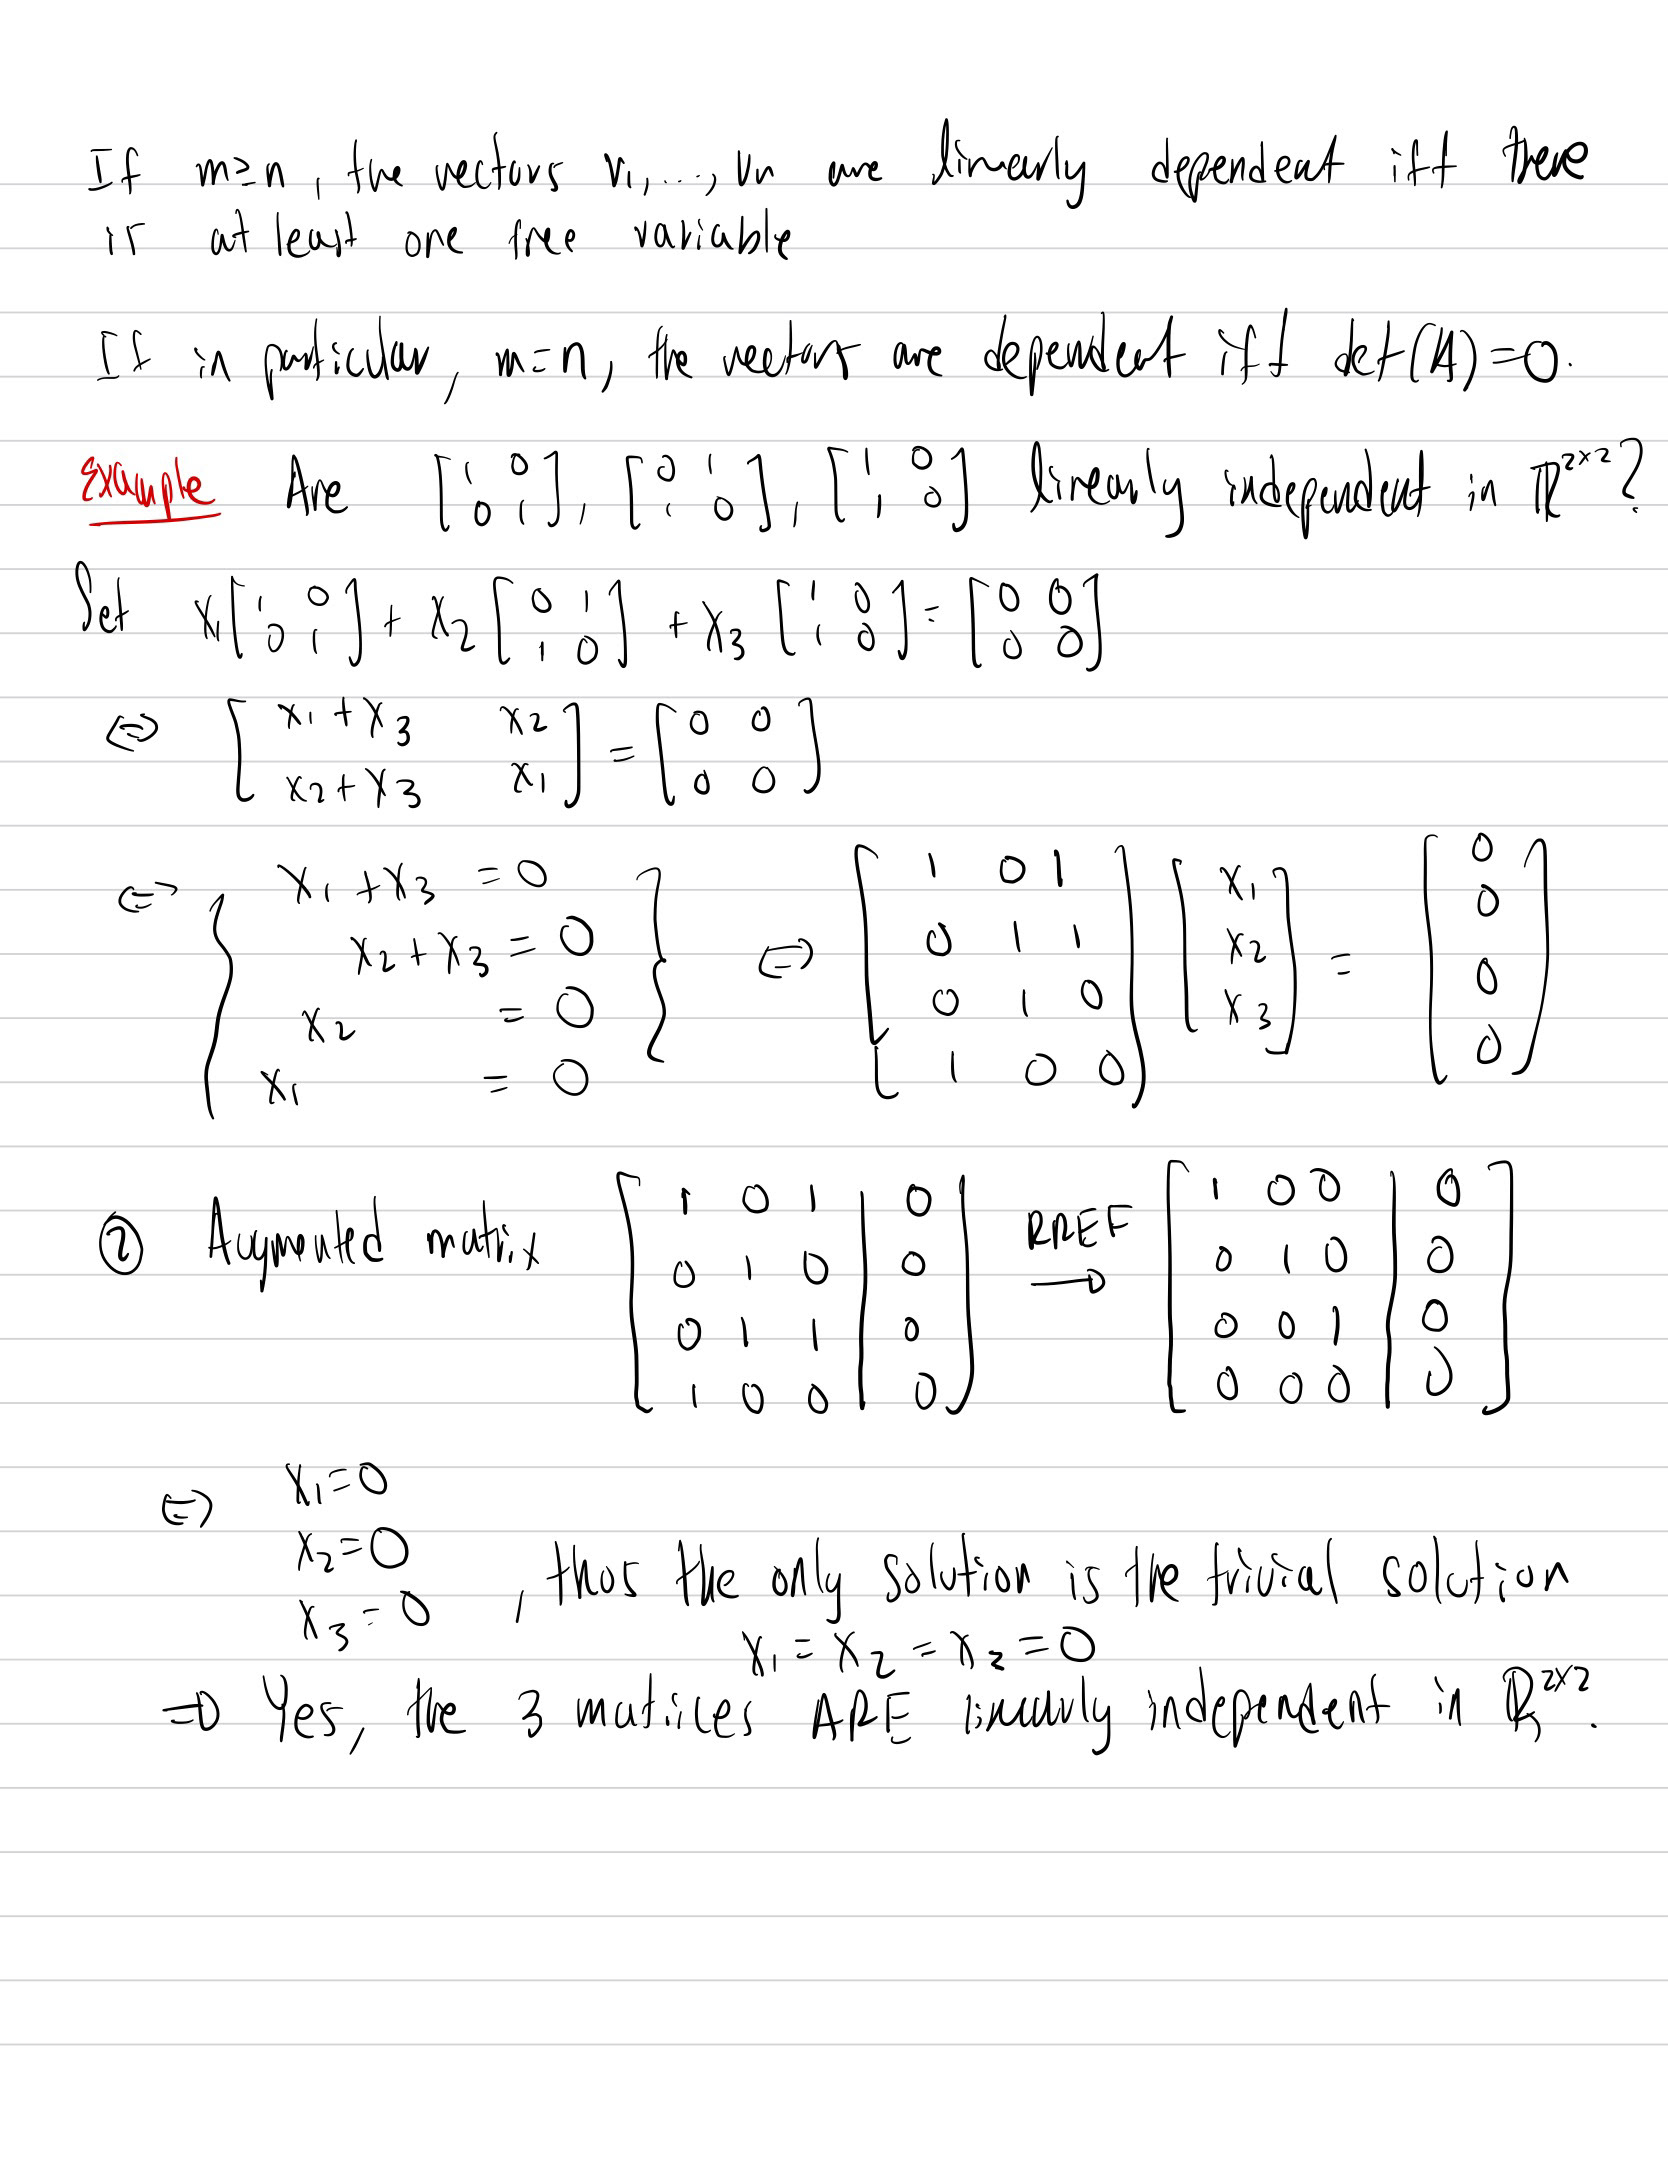 If m≥n, the vectors v₁,...,vₙ are linearly dependent iff there
is at least one free variable
If in particular, m=n, the vectors are dependent iff det(A)=0.
Example Are [1 0; 0 1], [0 1; 1 0], [1 0; 1 0] linearly independent in ℝ²ˣ²?
Set x₁[1 0; 0 1] + x₂[0 1; 1 0] + x₃[1 0; 1 0] = [0 0; 0 0]
⇔ [x₁+x₃ x₂; x₂+x₃ x₁] = [0 0; 0 0]
⇔ { x₁+x₃ = 0; x₂+x₃ = 0; x₂ = 0; x₁ = 0 } ⇔ [1 0 1; 0 1 1; 0 1 0; 1 0 0] [x₁; x₂; x₃] = [0; 0; 0; 0]
② Augmented matrix [1 0 1 | 0; 0 1 0 | 0; 0 1 1 | 0; 1 0 0 | 0] RREF → [1 0 0 | 0; 0 1 0 | 0; 0 0 1 | 0; 0 0 0 | 0]
⇔ x₁=0
x₂=0
x₃=0 , thus the only solution is the trivial solution
x₁=x₂=x₃=0
⇒ Yes, the 3 matrices ARE linearly independent in ℝ²ˣ².